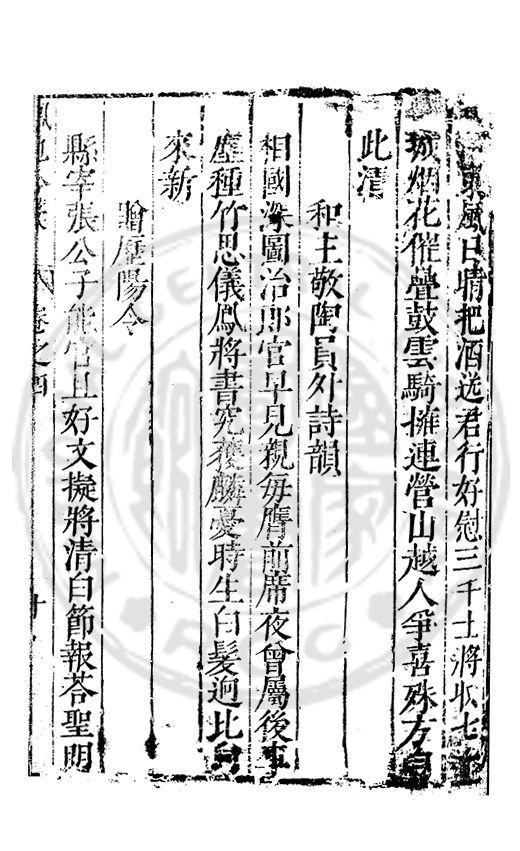 風日晴把酒送君行好慰三千士將收七
城烟花催疊鼓雲騎擁連營山越人爭喜殊方自
此清
和王敬陶員外詩韻
相國深圖治郎官早見親每膺前席夜曾屬後車
塵種竹思儀鳳將書究獲麟憂時生白髮迥比兒
來新
贈歷陽令
縣宰張公子能官且好文擬將清白節報荅聖明
卷之四